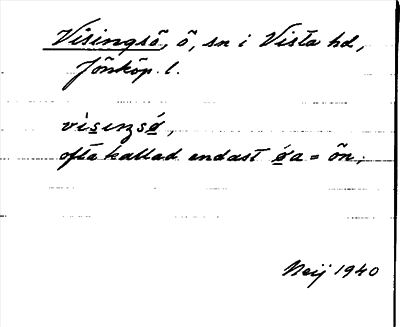 Visingsö, ö, sn i Vista hd,
Jönköp. l.
visiŋsø,
ofta kallad endast øa = ön,
Neij 1940